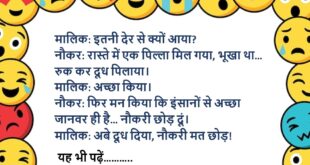 मालिक: इतनी देर से क्यों आया?
नौकर: रास्ते में एक पिल्ला मिल गया, भूखा था...
रुक कर दूध पिलाया।
मालिक: अच्छा किया।
नौकर: फिर मन किया कि इंसानों से अच्छा
जानवर ही है... नौकरी छोड़ दूं।
मालिक: अबे दूध दिया, नौकरी मत छोड़!
यह भी पढ़ें...........